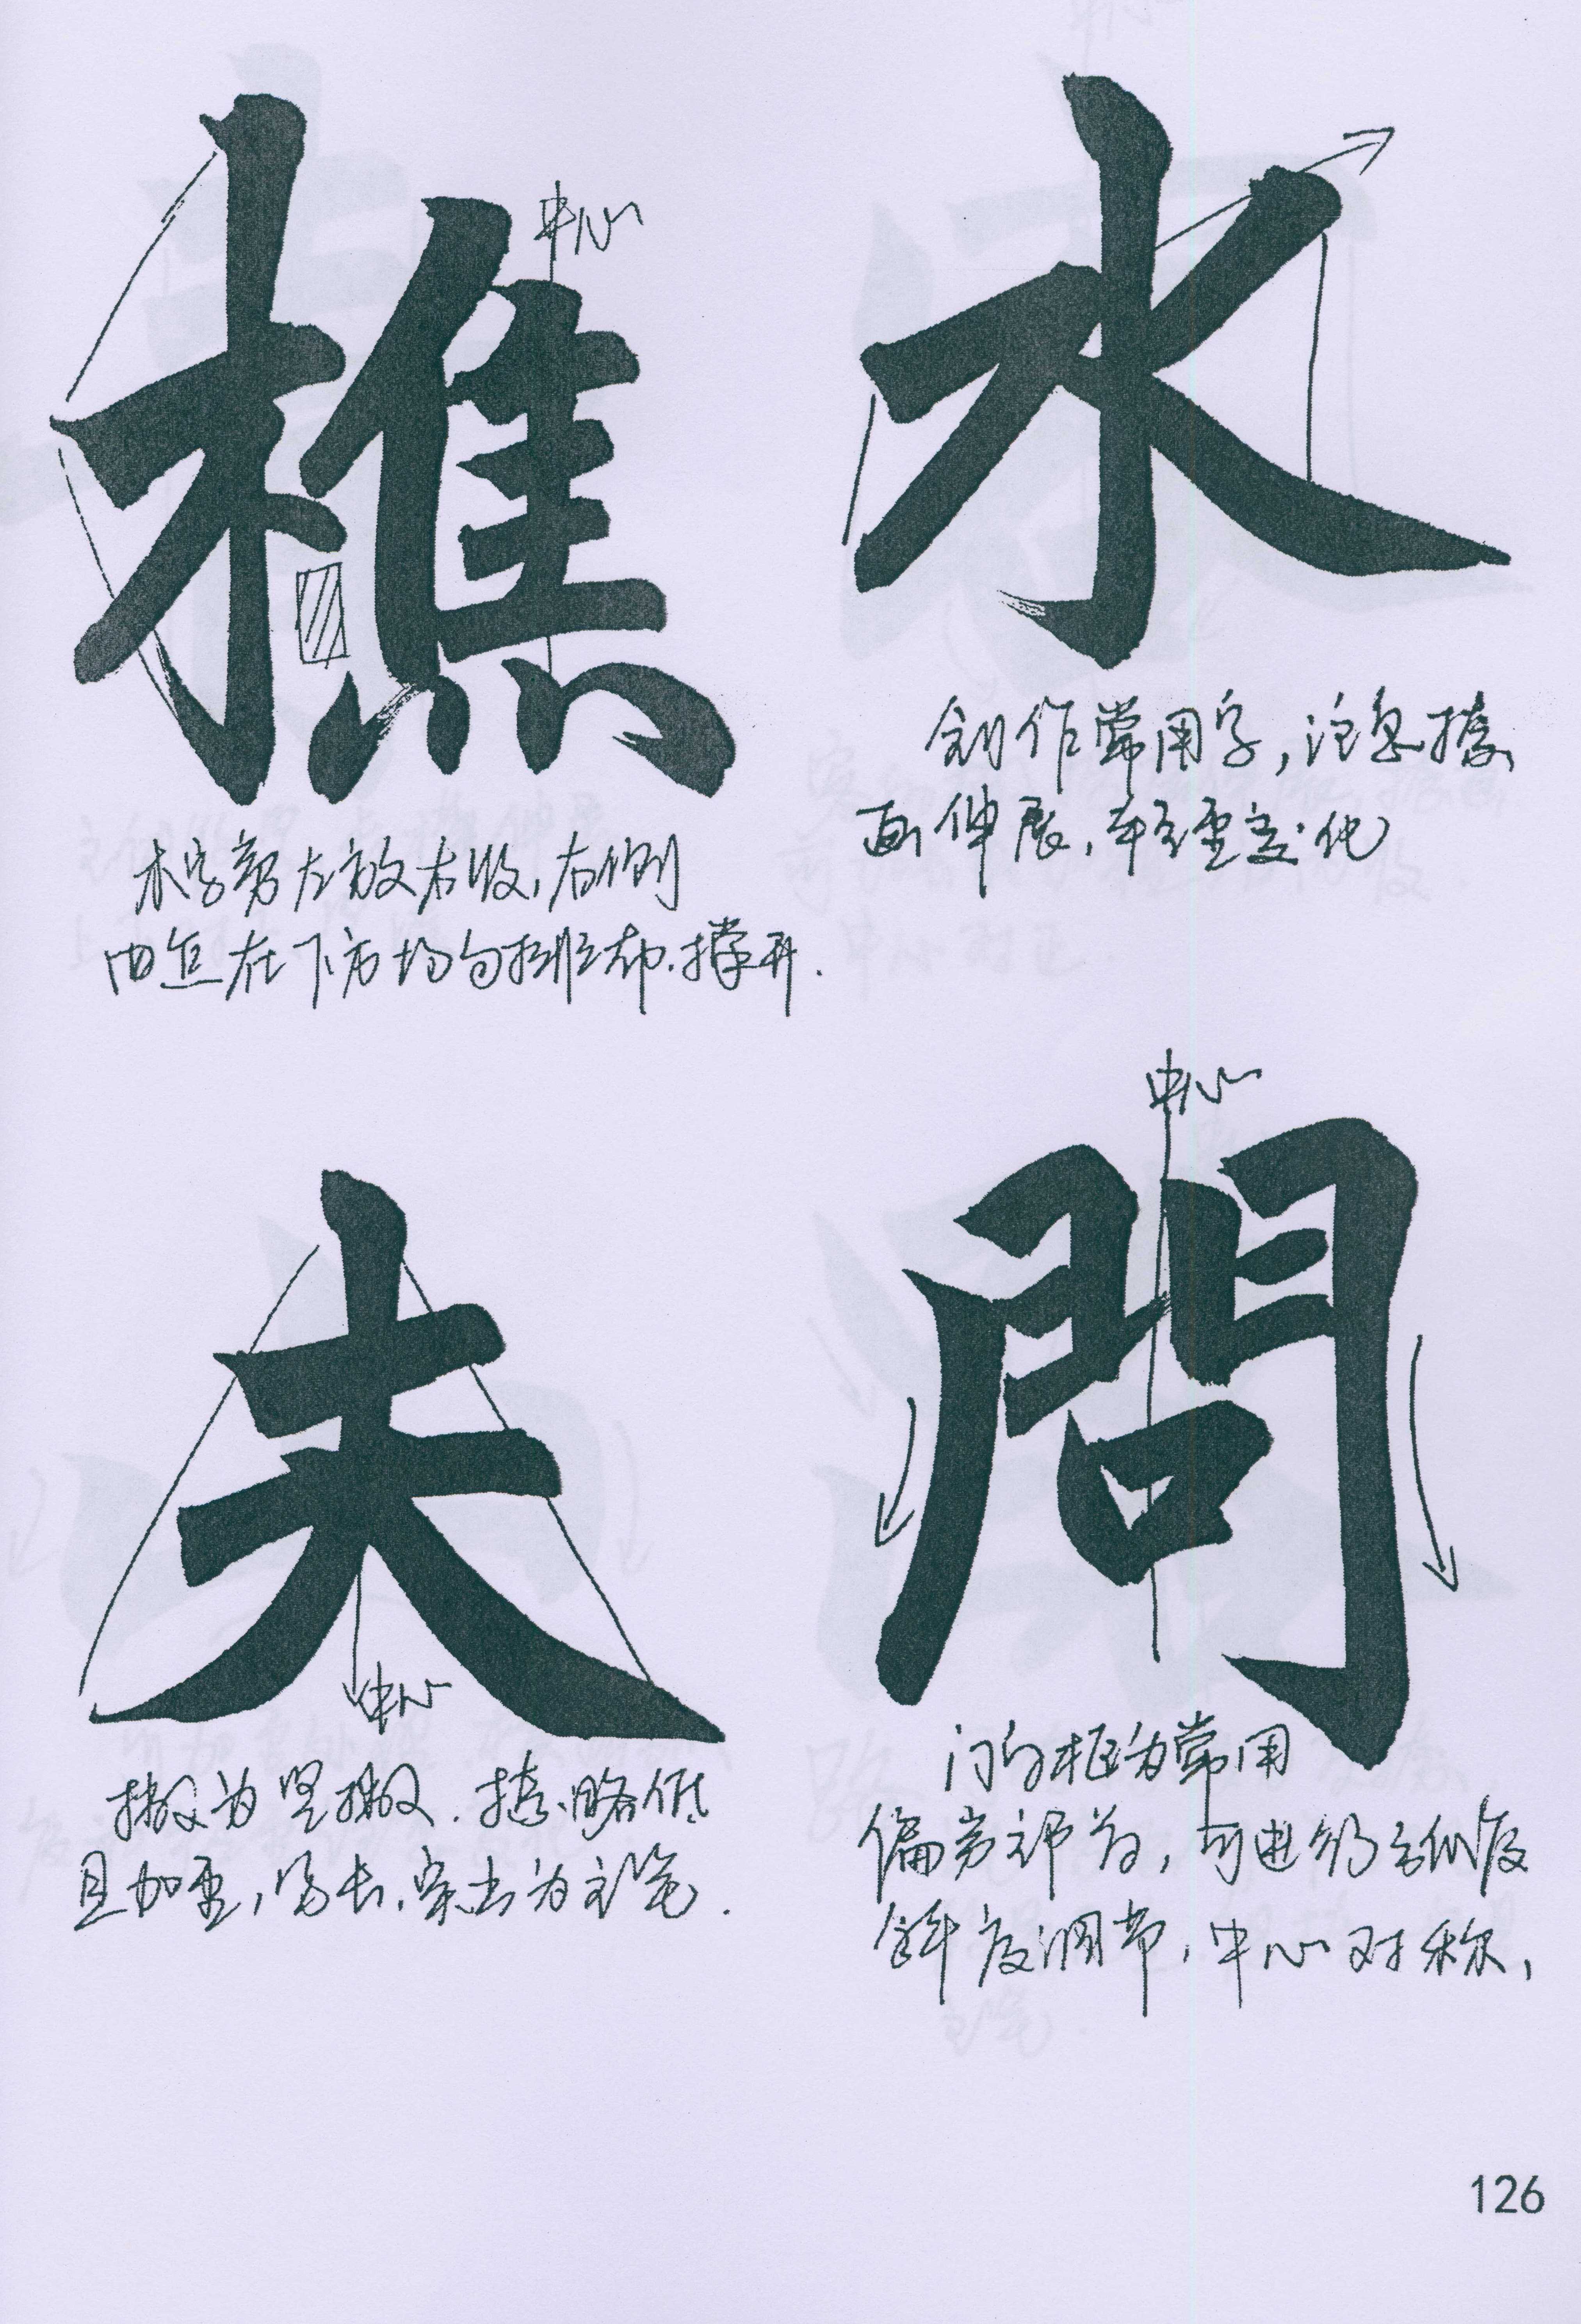 樵
中心
木字旁左放右收，右侧
四点在下方均匀排布.撑开.
水
创作常用字，注意捺
画伸展，轻重变化
夫
中心
撇为竖撇.捺略低
且加重，写长.突出为主笔.
問
中心
门字框为常用
偏旁部首，可进行弧度
斜度调节，中心对称，
126